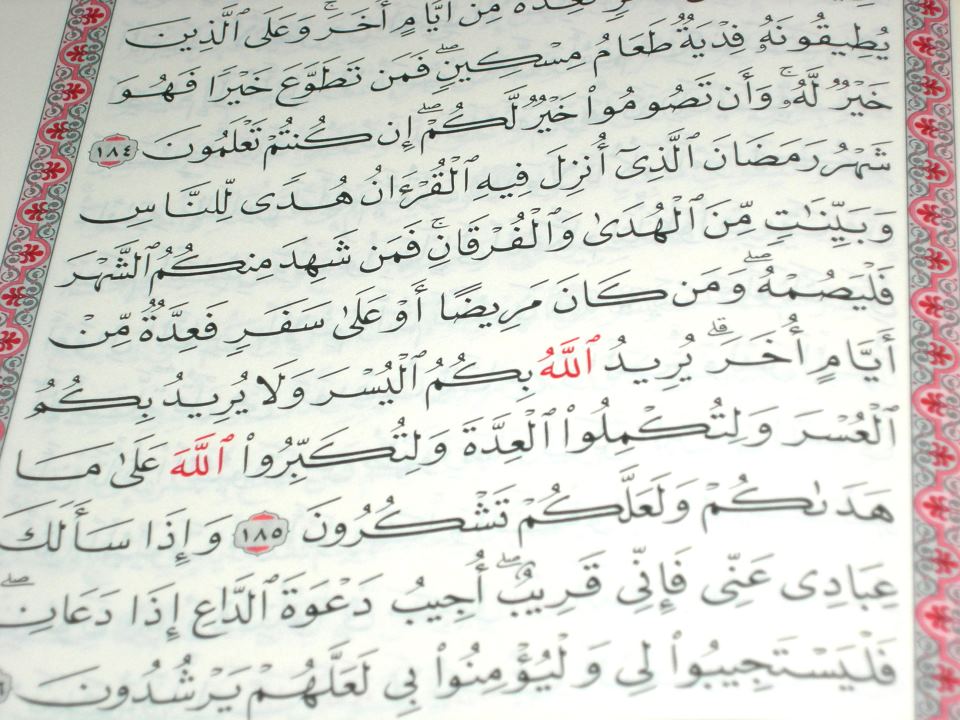 فَعِدَّةٌ مِّنْ أَيَّامٍ أُخَرَ ۚ وَعَلَى ٱلَّذِينَ
يُطِيقُونَهُۥ فِدْيَةٌ طَعَامُ مِسْكِينٍ ۖ فَمَن تَطَوَّعَ خَيْرًا فَهُوَ
خَيْرٌ لَّهُۥ ۚ وَأَن تَصُومُوا۟ خَيْرٌ لَّكُمْ ۖ إِن كُنتُمْ تَعْلَمُونَ ١٨٤
شَهْرُ رَمَضَانَ ٱلَّذِىٓ أُنزِلَ فِيهِ ٱلْقُرْءَانُ هُدًى لِّلنَّاسِ
وَبَيِّنَٰتٍ مِّنَ ٱلْهُدَىٰ وَٱلْفُرْقَانِ ۚ فَمَن شَهِدَ مِنكُمُ ٱلشَّهْرَ
فَلْيَصُمْهُ ۖ وَمَن كَانَ مَرِيضًا أَوْ عَلَىٰ سَفَرٍ فَعِدَّةٌ مِّنْ
أَيَّامٍ أُخَرَ ۗ يُرِيدُ ٱللَّهُ بِكُمُ ٱلْيُسْرَ وَلَا يُرِيدُ بِكُمُ
ٱلْعُسْرَ وَلِتُكْمِلُوا۟ ٱلْعِدَّةَ وَلِتُكَبِّرُوا۟ ٱللَّهَ عَلَىٰ مَا
هَدَىٰكُمْ وَلَعَلَّكُمْ تَشْكُرُونَ ١٨٥ وَإِذَا سَأَلَكَ
عِبَادِى عَنِّى فَإِنِّى قَرِيبٌ ۖ أُجِيبُ دَعْوَةَ ٱلدَّاعِ إِذَا دَعَانِ ۖ
فَلْيَسْتَجِيبُوا۟ لِى وَلْيُؤْمِنُوا۟ بِى لَعَلَّهُمْ يَرْشُدُونَ